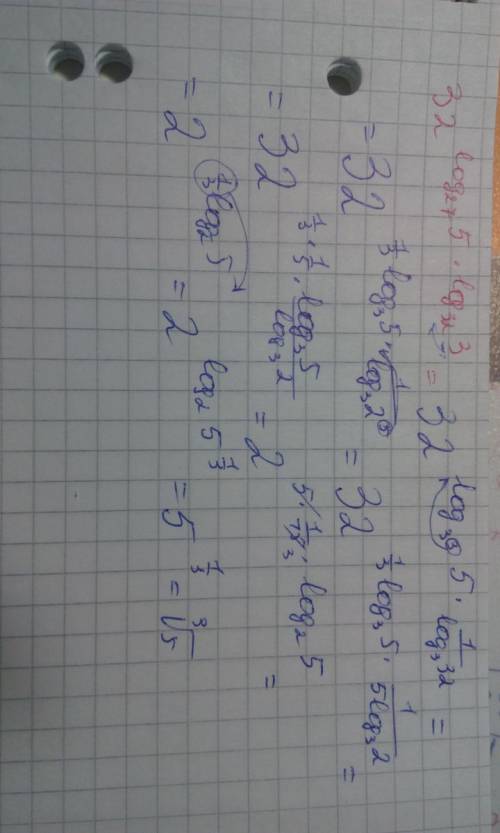 32^(log₂₇ 5 · log₃₂ 3) = 32^(log₃③ 5 · 1/log₃ 32) =
= 32^(1/3 log₃ 5 · 1/log₃ 2⑤) = 32^(1/3 log₃ 5 · 1/(5 log₃ 2)) =
= 32^(1/3 · 1/5 · log₃ 5/log₃ 2) = 2^(5 · 1/15 · log₂ 5) =
= 2^(1/3 log₂ 5) = 2^(log₂ 5^(1/3)) = 5^(1/3) = ∛5